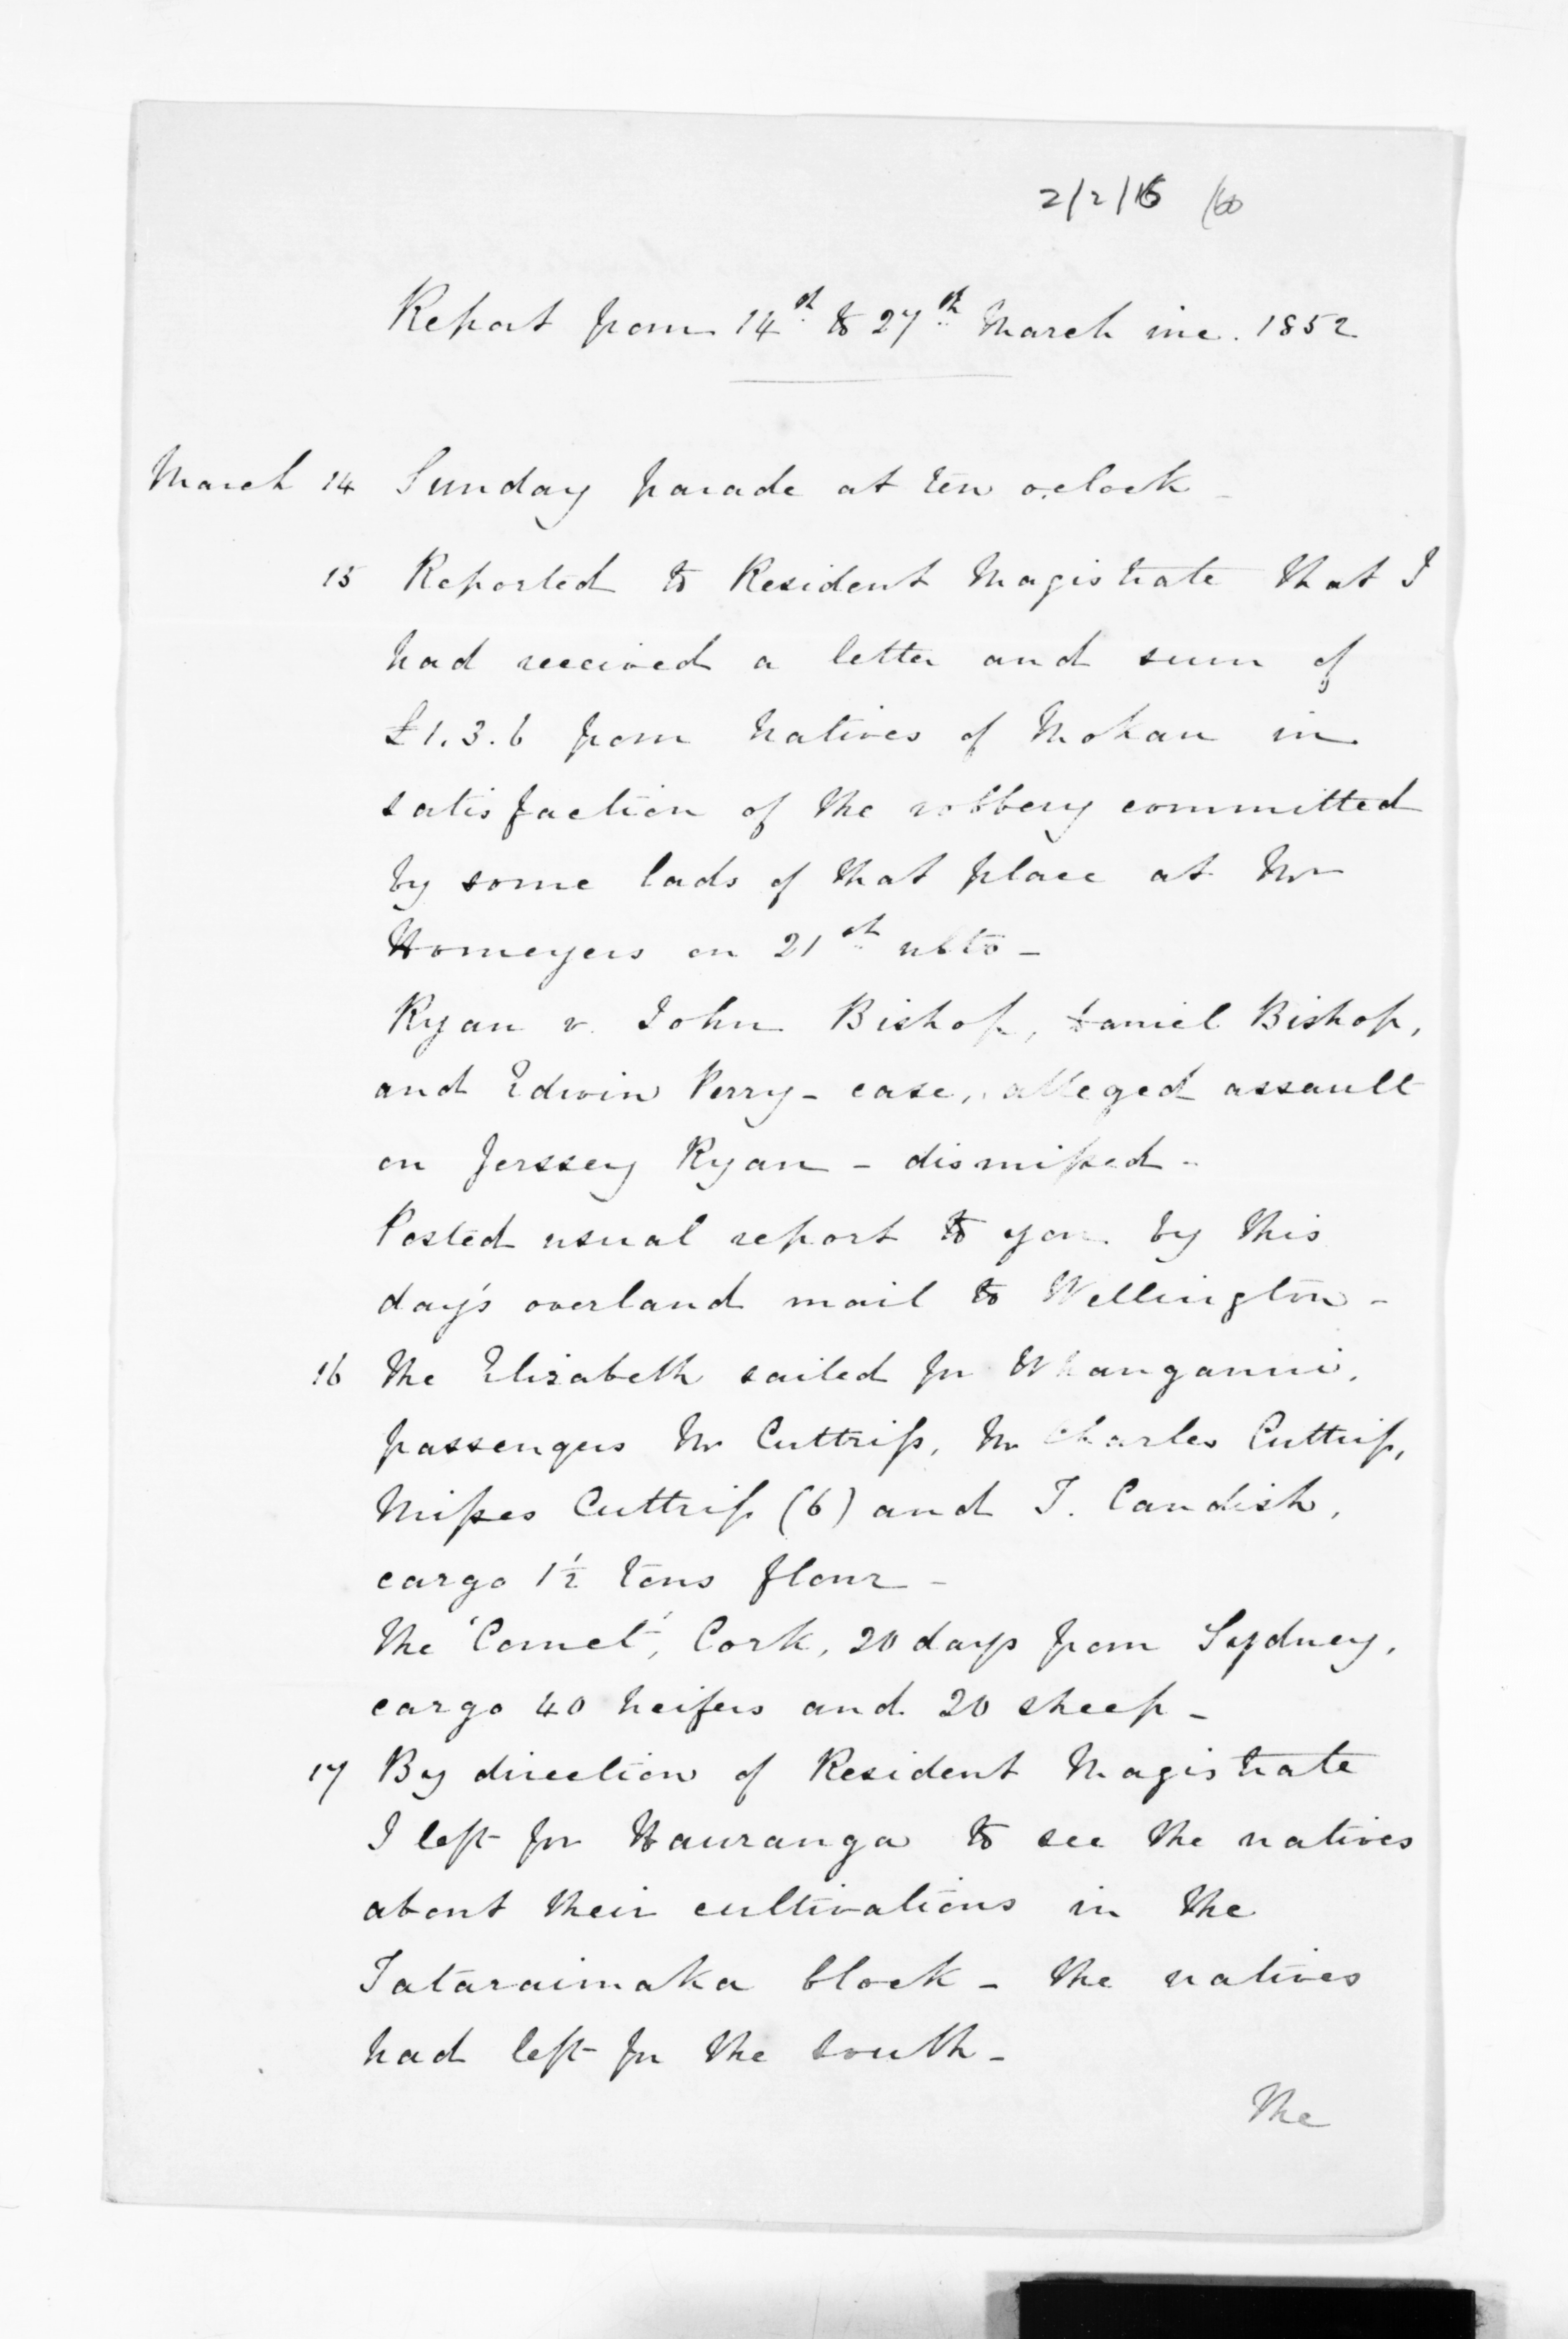 2/2/16
Report from 14th to 27th March inc. 1852
March 14 Sunday parade at ten o.clock -
15 Reported to Resident Magistrate that I
had received a letter and sum of
£1.3.6 from Natives of Mokau in
satisfaction of the robbery committed
by some lads of that place at Mr
Homeyers on 21st ulto -
Ryan v. John Bishop, Daniel Bishop,
and Edwin Perry - case, alleged assault
on Jerssey Ryan - dismissed -
Posted usual report to you by this
day's overland mail to Wellington -
16 The Elizabeth sailed for Whanganui,
passengers Mr Cuttriss, Mr Charles Cuttriss,
Misses Cuttriss (6) and T. Candish,
cargo 1½ tons flour -
The 'Comet', Cork, 20 days from Sydney,
cargo 40 heifers and 20 sheep -
17 By direction of Resident Magistrate
I left for Hauranga to see the natives
about their cultivations in the
Tataraimaka block - the natives
had left for the South -
The